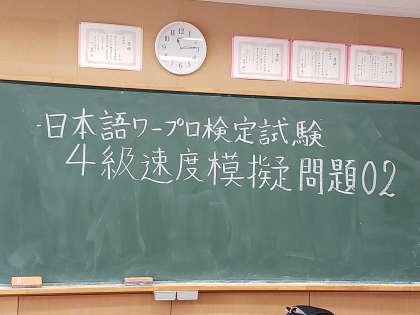 日本語ワープロ検定試験
4級速度模擬問題02